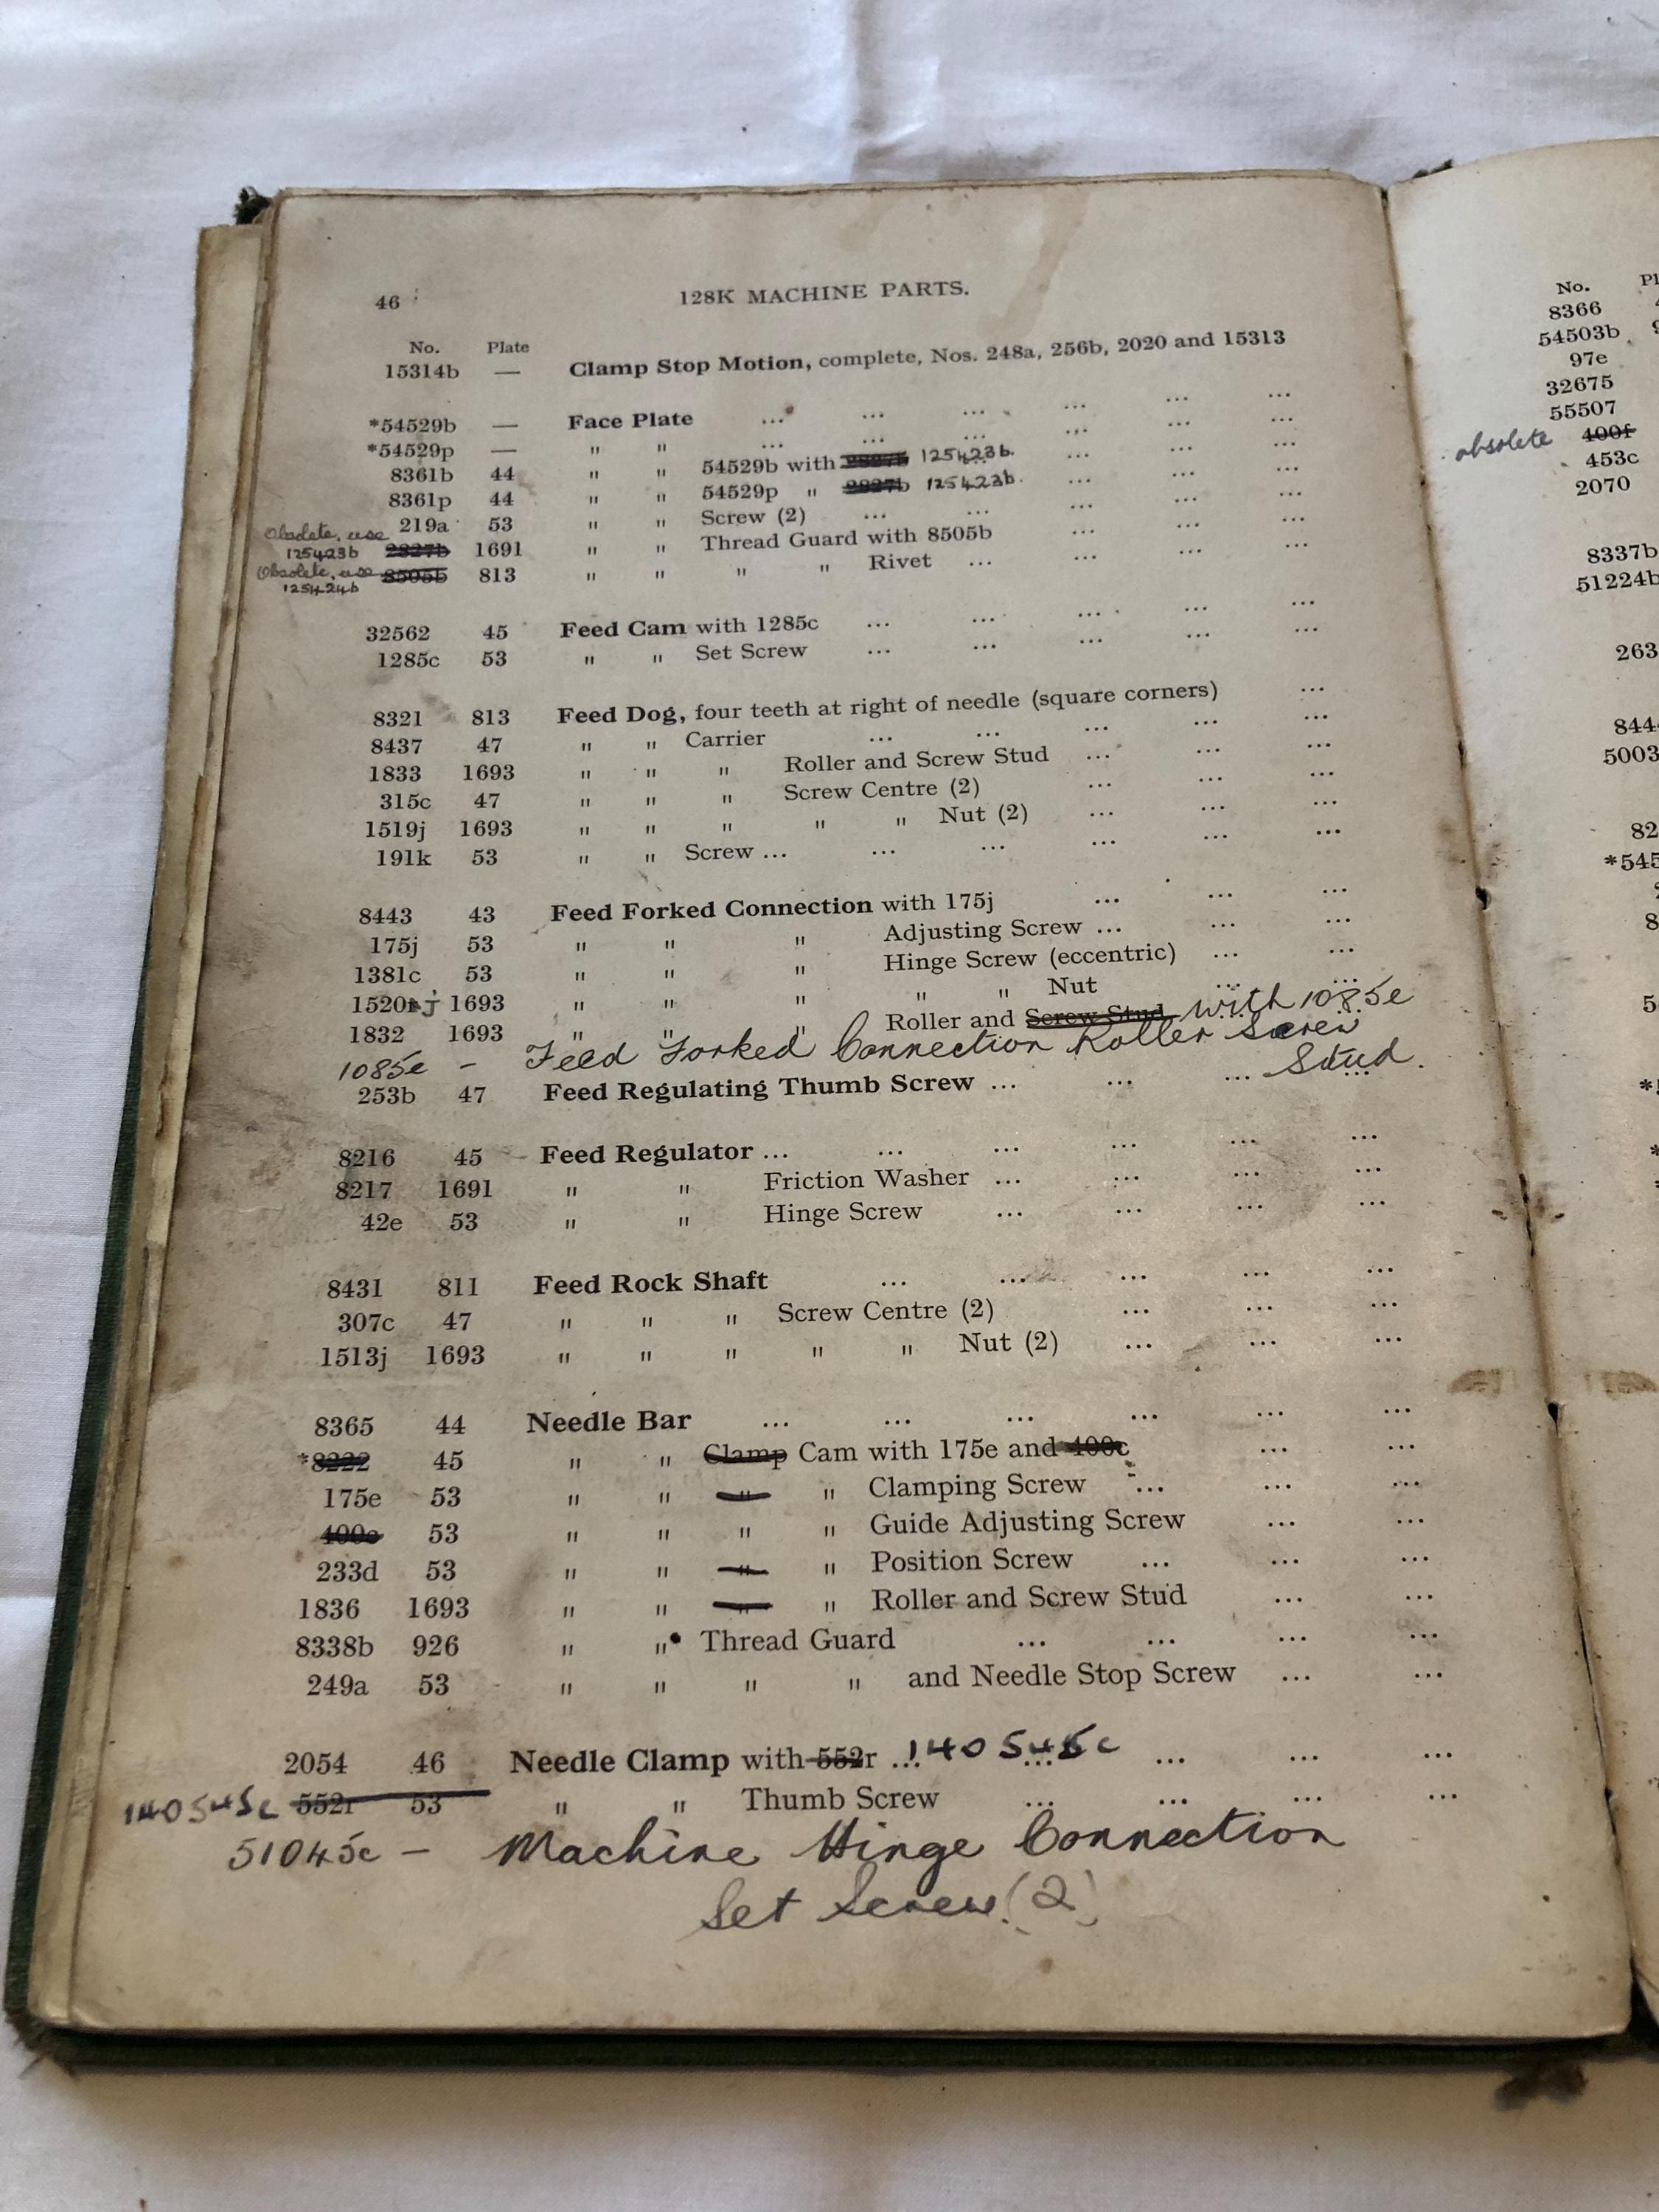 46 128K MACHINE PARTS.
No. Plate
15314b — Clamp Stop Motion, complete, Nos. 248a, 256b, 2020 and 15313
*54529b — Face Plate ... ... ... ... ... ...
*54529p — " " ... ... ... ... ... ...
8361b 44 " " 54529b with 2827b 125423b. ... ... ...
8361p 44 " " 54529p " 2827b 125423b. ... ... ...
219a 53 " " Screw (2) ... ... ... ... ...
Obsolete, use
125423b 2827b 1691 " " Thread Guard with 8505b ... ... ...
Obsolete, use 8505b 813 " " " " Rivet ... ... ... ...
125424b
32562 45 Feed Cam with 1285c ... ... ... ... ...
1285c 53 " " Set Screw ... ... ... ... ...
8321 813 Feed Dog, four teeth at right of needle (square corners) ...
8437 47 " " Carrier ... ... ... ... ...
1833 1693 " " " Roller and Screw Stud ... ... ...
315c 47 " " " Screw Centre (2) ... ... ...
1519j 1693 " " " " " Nut (2) ... ... ...
191k 53 " " Screw ... ... ... ... ... ...
8443 43 Feed Forked Connection with 175j ... ... ...
175j 53 " " " Adjusting Screw ... ... ...
1381c 53 " " " Hinge Screw (eccentric) ... ...
1520 J 1693 " " " " " Nut ... ...
1832 1693 " " " Roller and Screw Stud with 1085e
1085e - Feed Forked Connection Roller Screw
Stud.
253b 47 Feed Regulating Thumb Screw ... ... ... ...
8216 45 Feed Regulator ... ... ... ... ... ...
8217 1691 " " Friction Washer ... ... ... ...
42e 53 " " Hinge Screw ... ... ... ...
8431 811 Feed Rock Shaft ... ... ... ... ...
307c 47 " " " Screw Centre (2) ... ... ...
1513j 1693 " " " " " Nut (2) ... ... ...
8365 44 Needle Bar ... ... ... ... ... ...
*8222 45 " " Clamp Cam with 175e and 400c ... ...
175e 53 " " " " Clamping Screw ... ... ...
400c 53 " " " " Guide Adjusting Screw ... ...
233d 53 " " " " Position Screw ... ... ...
1836 1693 " " " " Roller and Screw Stud ... ...
8338b 926 " " Thread Guard ... ... ... ...
249a 53 " " " " and Needle Stop Screw ... ...
2054 46 Needle Clamp with 552r ... 140545c ... ... ...
140545c 552r 53 " " Thumb Screw ... ... ... ...
51045c - Machine Hinge Connection
Set Screw (2)
No.
8366
54503b
97e
32675
55507
obsolete 400f
453c
2070
8337b